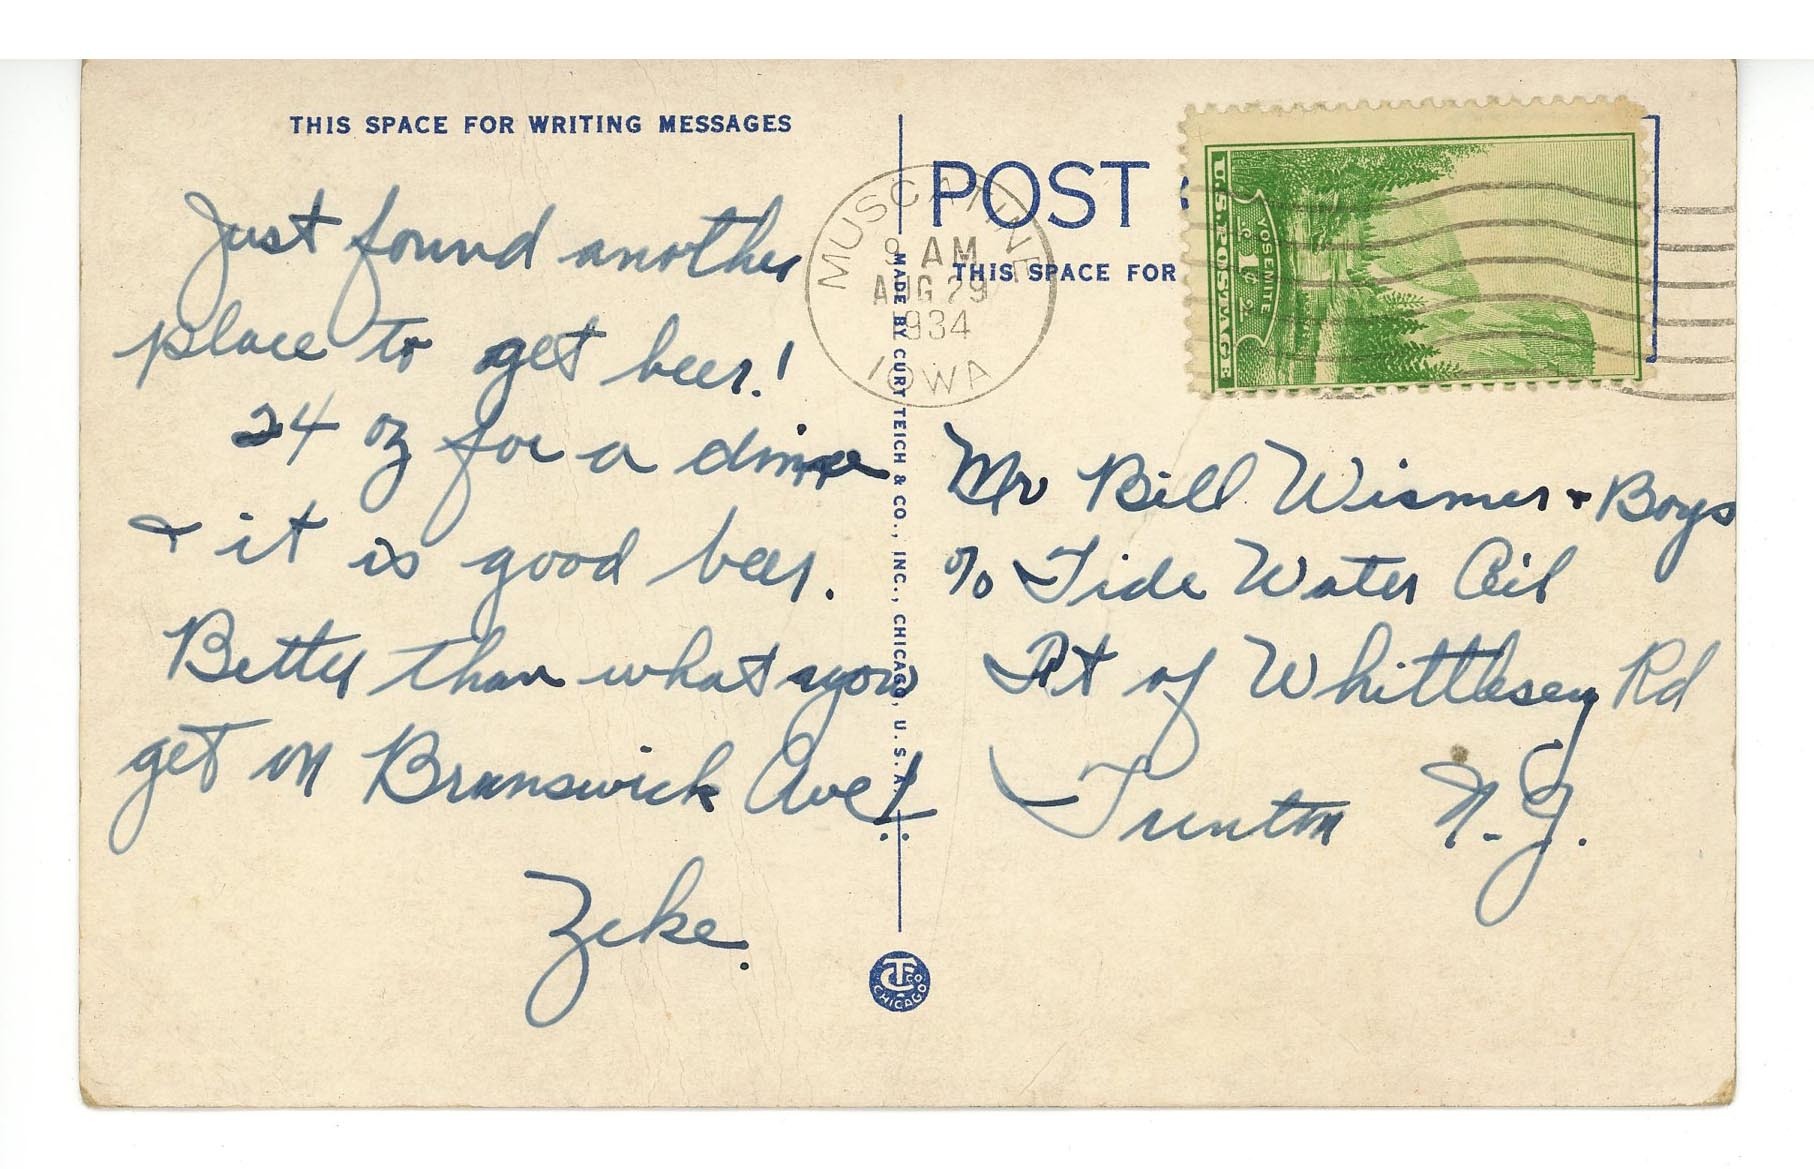 THIS SPACE FOR WRITING MESSAGES
Just found another
place to get beer!
24 oz for a dime
& it is good beer.
Better than what you
get on Brunswick Ave!
Zeke.
MADE BY CURT TEICH & CO., INC., CHICAGO, U.S.A.
C.T. CO. CHICAGO
POST
THIS SPACE FOR
MUSCATINE
9 AM
AUG 29
1934
IOWA
U.S. POSTAGE
YOSEMITE
1¢
Mr Bill Wismer & Boys
c/o Tide Water Oil
Ft of Whittlesey Rd
Trenton N.J.